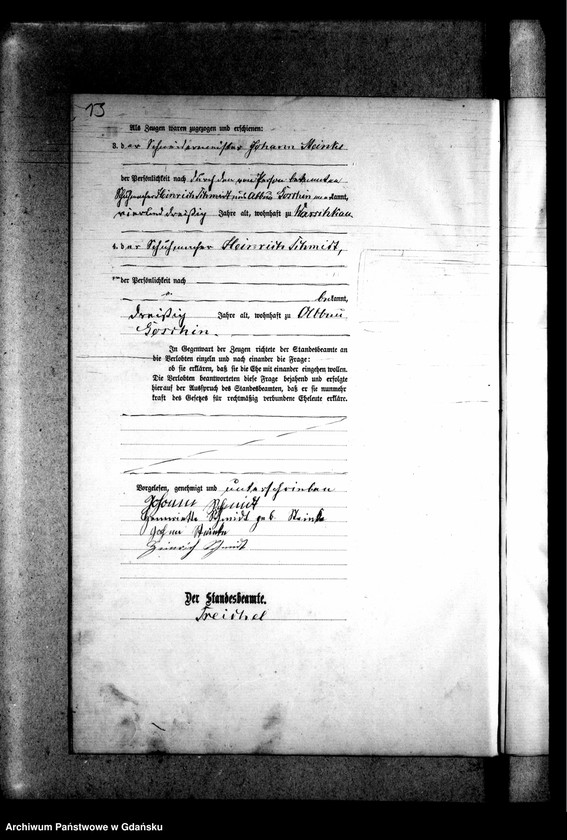 13
Als Zeugen waren zugezogen und erschienen:
3. der Schneidermeister Johann Steinke
der Persönlichkeit nach durch den von Person bekannten
Schuhmacher Heinrich Schmidt aus Abbau Goschin anerkannt,
vierunddreißig Jahre alt, wohnhaft zu Warschkau
4. der Schuhmacher Heinrich Schmidt,
der Persönlichkeit nach
bekannt,
dreißig Jahre alt, wohnhaft zu Abbau
Goschin.
In Gegenwart der Zeugen richtete der Standesbeamte an
die Verlobten einzeln und nach einander die Frage:
ob sie erklären, daß sie die Ehe mit einander eingehen wollen.
Die Verlobten beantworteten diese Frage bejahend und erfolgte
hierauf der Ausspruch des Standesbeamten, daß er sie nunmehr
kraft des Gesetzes für rechtmäßig verbundene Eheleute erkläre.
Vorgelesen, genehmigt und unterschrieben
Johann Schmidt
Henriette Schmidt geb. Steinke
Johann Steinke
Heinrich Schmidt
Der Standesbeamte.
Treichel
Archiwum Państwowe w Gdańsku